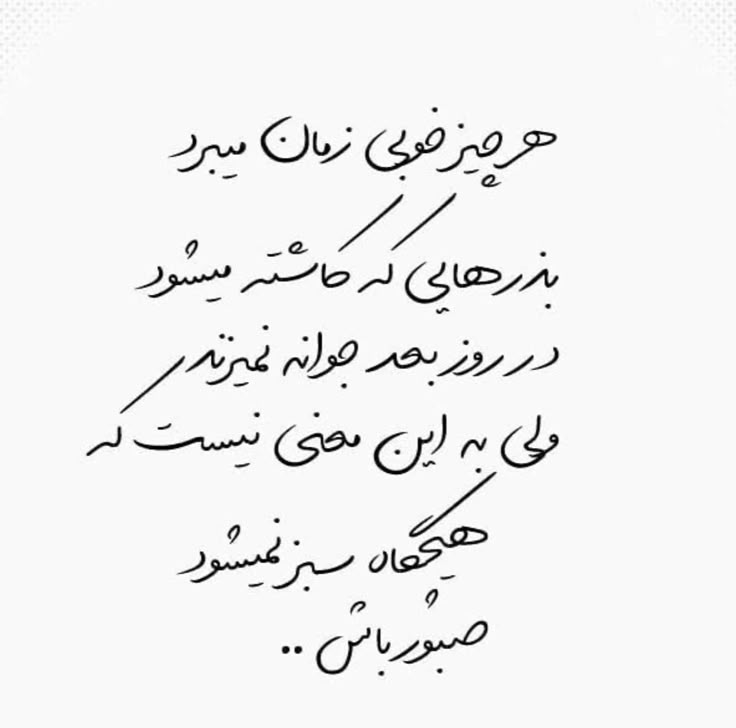 هر چیز خوبی زمان میبرد
بذرهایی که کاشته میشود
در روز بعد جوانه نمیزند
ولی به این معنی نیست که
هیچگاه سبز نمیشود
صبور باش ..